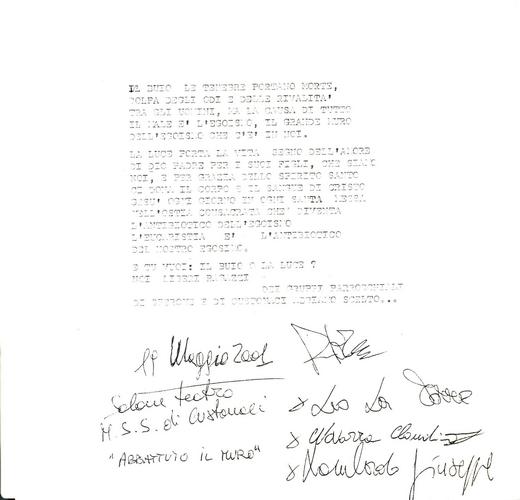 IL BUIO LE TENEBRE PORTANO MORTE,
COLPA DEGLI ODI E DELLE RIVALITA'
TRA GLI UOMINI, MA LA CAUSA DI TUTTO
IL MALE E' L'EGOISMO, IL GRANDE MURO
DELL'EGOISMO CHE C'E' IN NOI.
LA LUCE PORTA LA VITA SEGNO DELL'AMORE
DI DIO PADRE PER I SUOI FIGLI, CHE SIAMO
NOI, E PER GRAZIA DELLO SPIRITO SANTO
CI DONA IL CORPO E IL SANGUE DI CRISTO
GESU' OGNI GIORNO IN OGNI SANTA MESSA
NELL'OSTIA CONSACRATA CHE DIVENTA
L'ANTIBIOTICO DELL'EGOISMO
L'EUCARISTIA E' L'ANTIBIOTICO
DEL NOSTRO EGOSIMO.
E TU VUOI: IL BUIO O LA LUCE ?
NOI LIBERI RAGAZZI
DEI GRUPPI PARROCCHIALI
DI E DI CUSTONACI ABBIAMO SCELTO...
19 Maggio 2001
Salone teatro
M.S.S. di Custonaci
"ABBATTUTO IL MURO"
x Leo La
x
x Lombardo Giuseppe